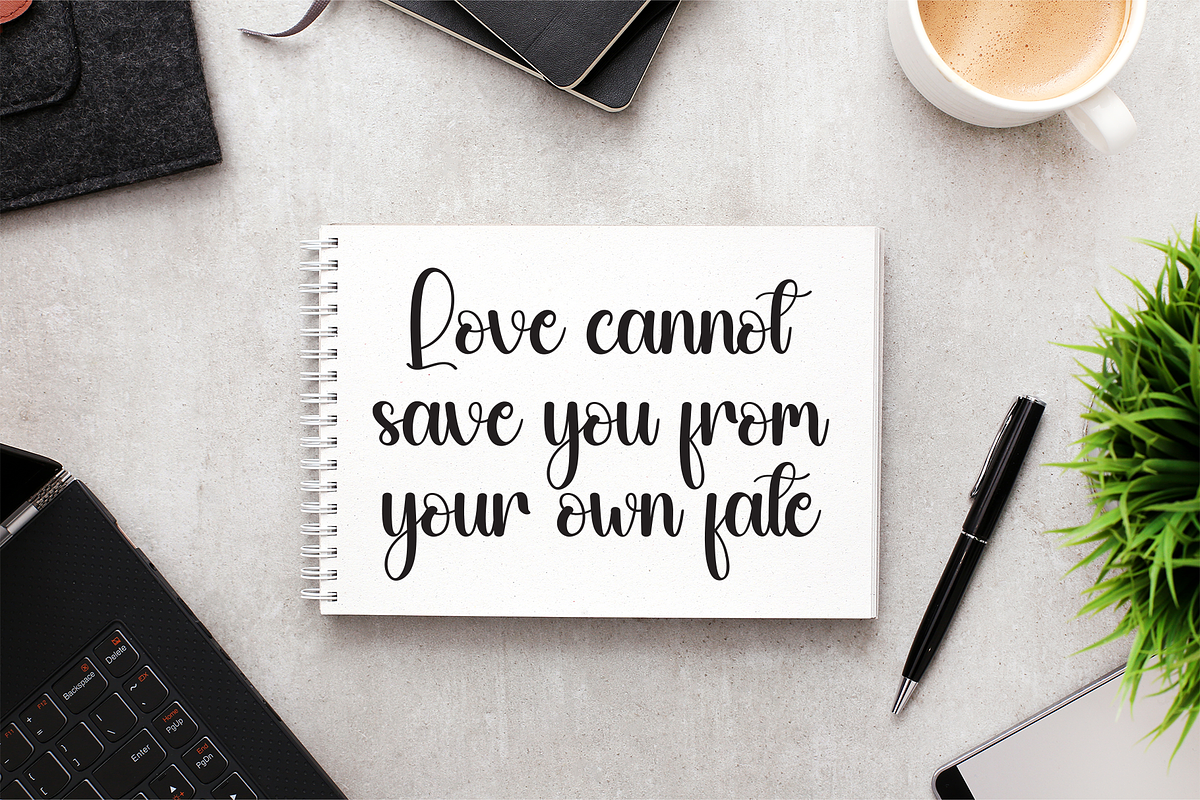 Love cannot
save you from
your own fate
Delete
Backspace
Home
PgUp
End
PgDn
Enter
F12
F11